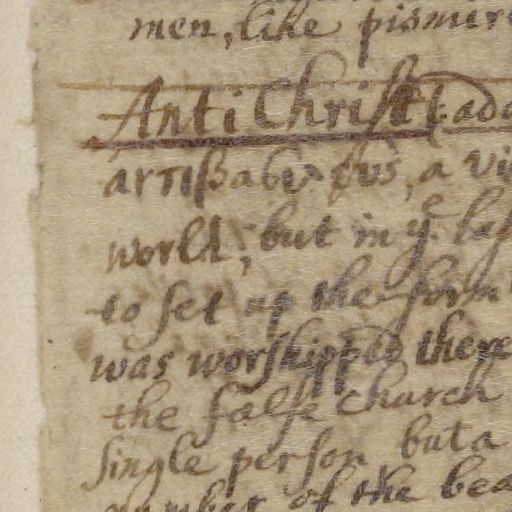 men, like pismire
Anti Christ: ado
a vi
world; but in yᵉ las
to set up the form
was worshipped there
the false church
single person but a
number of the bea